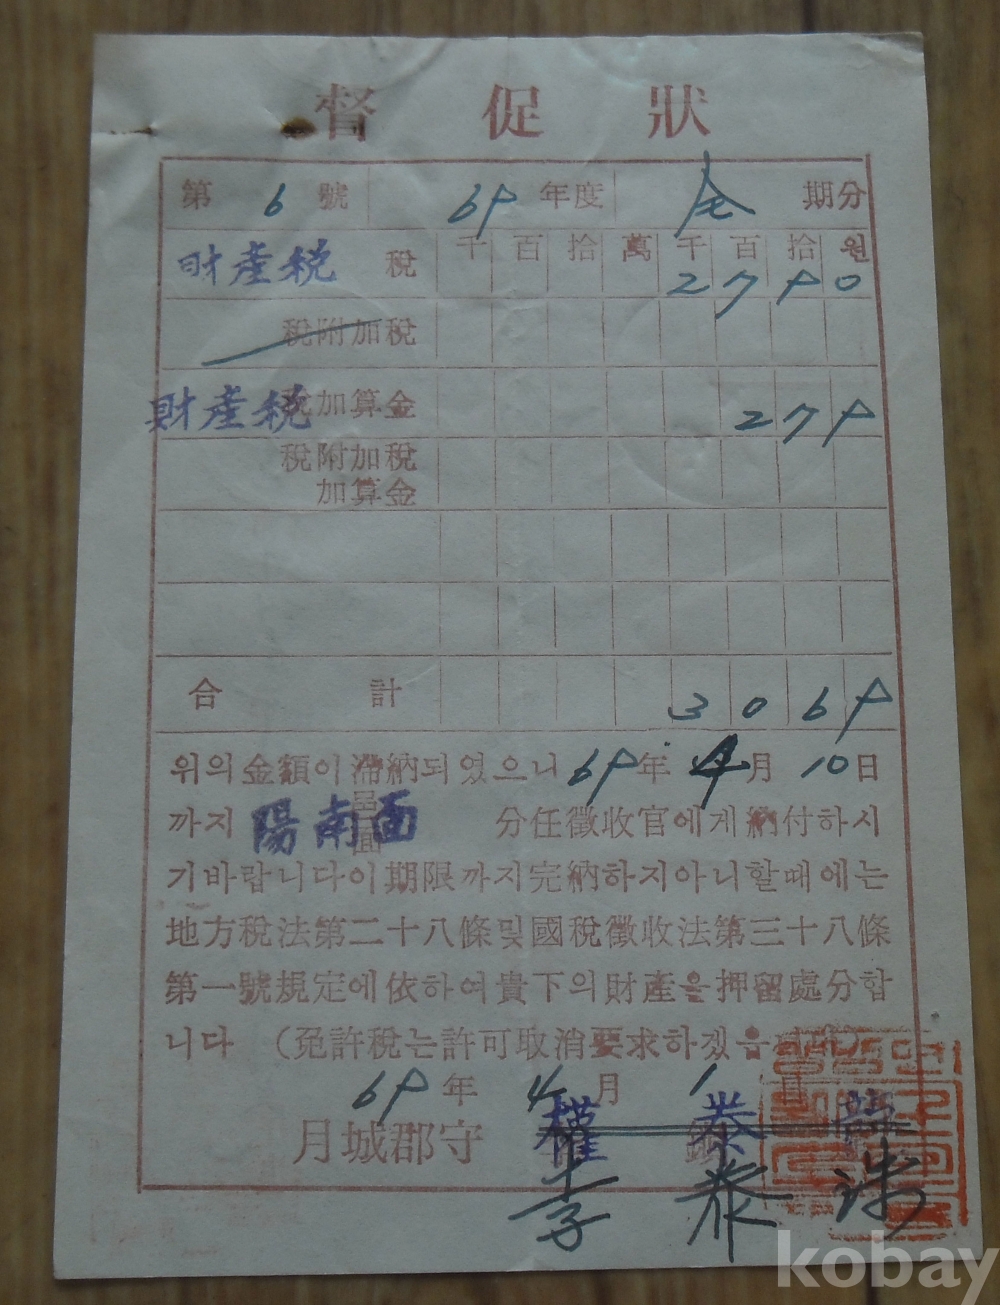 督促狀
第 6 號 69 年度 全 期分
財產稅 稅 千 百 拾 萬 千 百 拾 원
2 7 9 0
稅附加稅
財產稅 加算金 2 7 9
稅附加稅
加算金
合計 3 0 6 9
위의金額이滯納되였으니 69年 4月 10日
까지 陽南面 分任徵收官에게納付하시
기바랍니다이期限까지完納하지아니할때에는
地方稅法第二十八條및國稅徵收法第三十八條
第一號規定에依하여貴下의財產을押留處分합
니다 (免許稅는許可取消要求하겠음
69 年 4 月 1 日
月城郡守 權泰
李泰洙
kobay